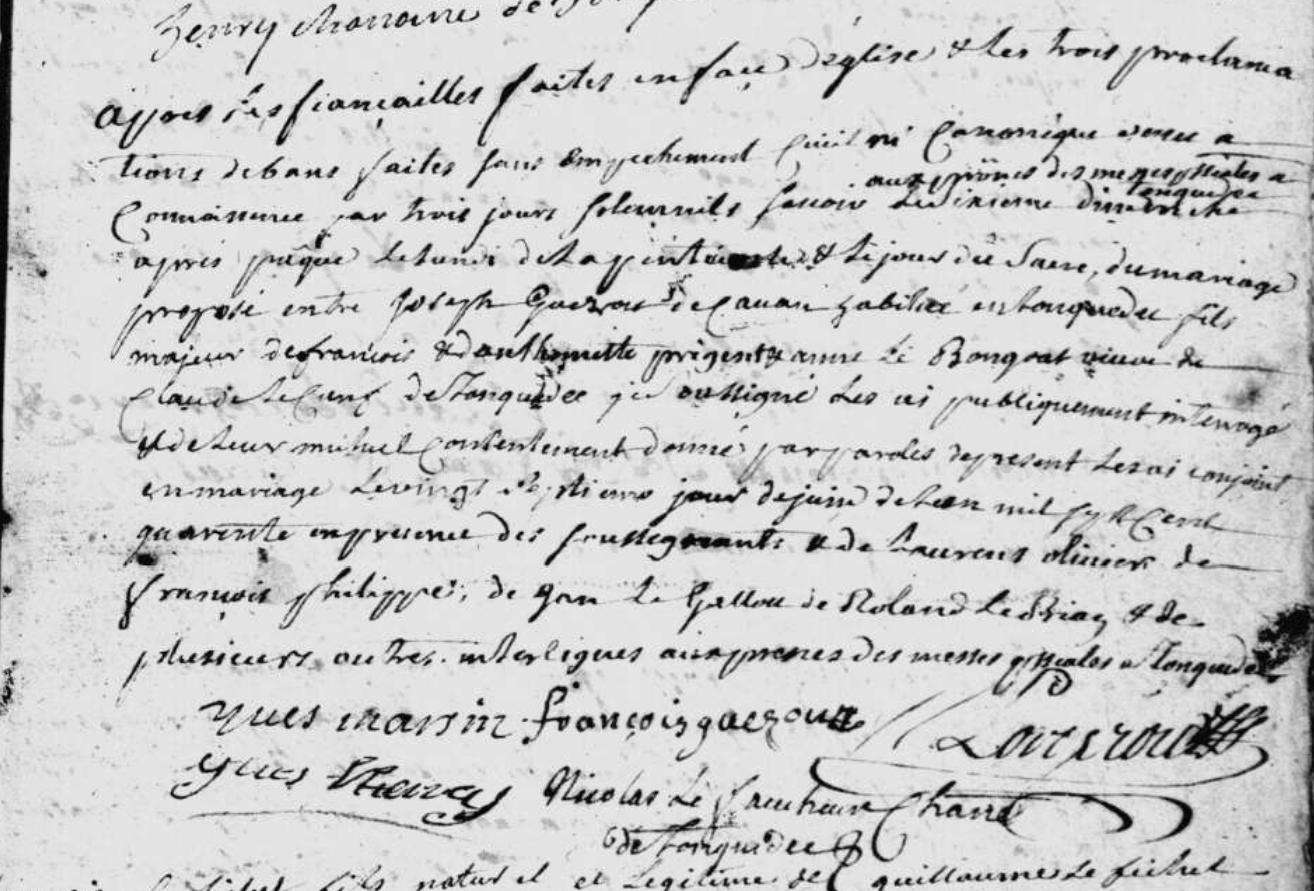 henry chanoine de
apres les fiançailles faites en face d'église & les trois proclama
tions de bans faites sans empechement civil ni canonique venu a
aux prônes des messes pssiales a
tonquedec
connaissance par trois jours solemnels scavoir le dixieme dimenche
apres pâque le lundi de la pentecoste & le jour du sacre, du mariage
propose entre joseph guezou de cavan habitué en tonquedec fils
majeur de francois & d'anthoinette prigent & anne le Bongoat veuve de
claude le cunf de tonquedec je soussigné les ai publiquement interrogé
& de leur mutuel consentement donné par paroles de present les ai conjoint
en mariage le vingt septieme jour de juin de l'an mil sept cent
quarente en presence des soussignants & de laurens olivier de
françois philippe, de jan le Gallou de Roland le Briaz & de
plusieurs autres. interlignes aux prones des messes pssiales a tonquedec
yves marrin françois guezou
yves henry Nicolas Le faucheur Chane
de tonquedec
fils naturel et legitime de guillaume le fichet